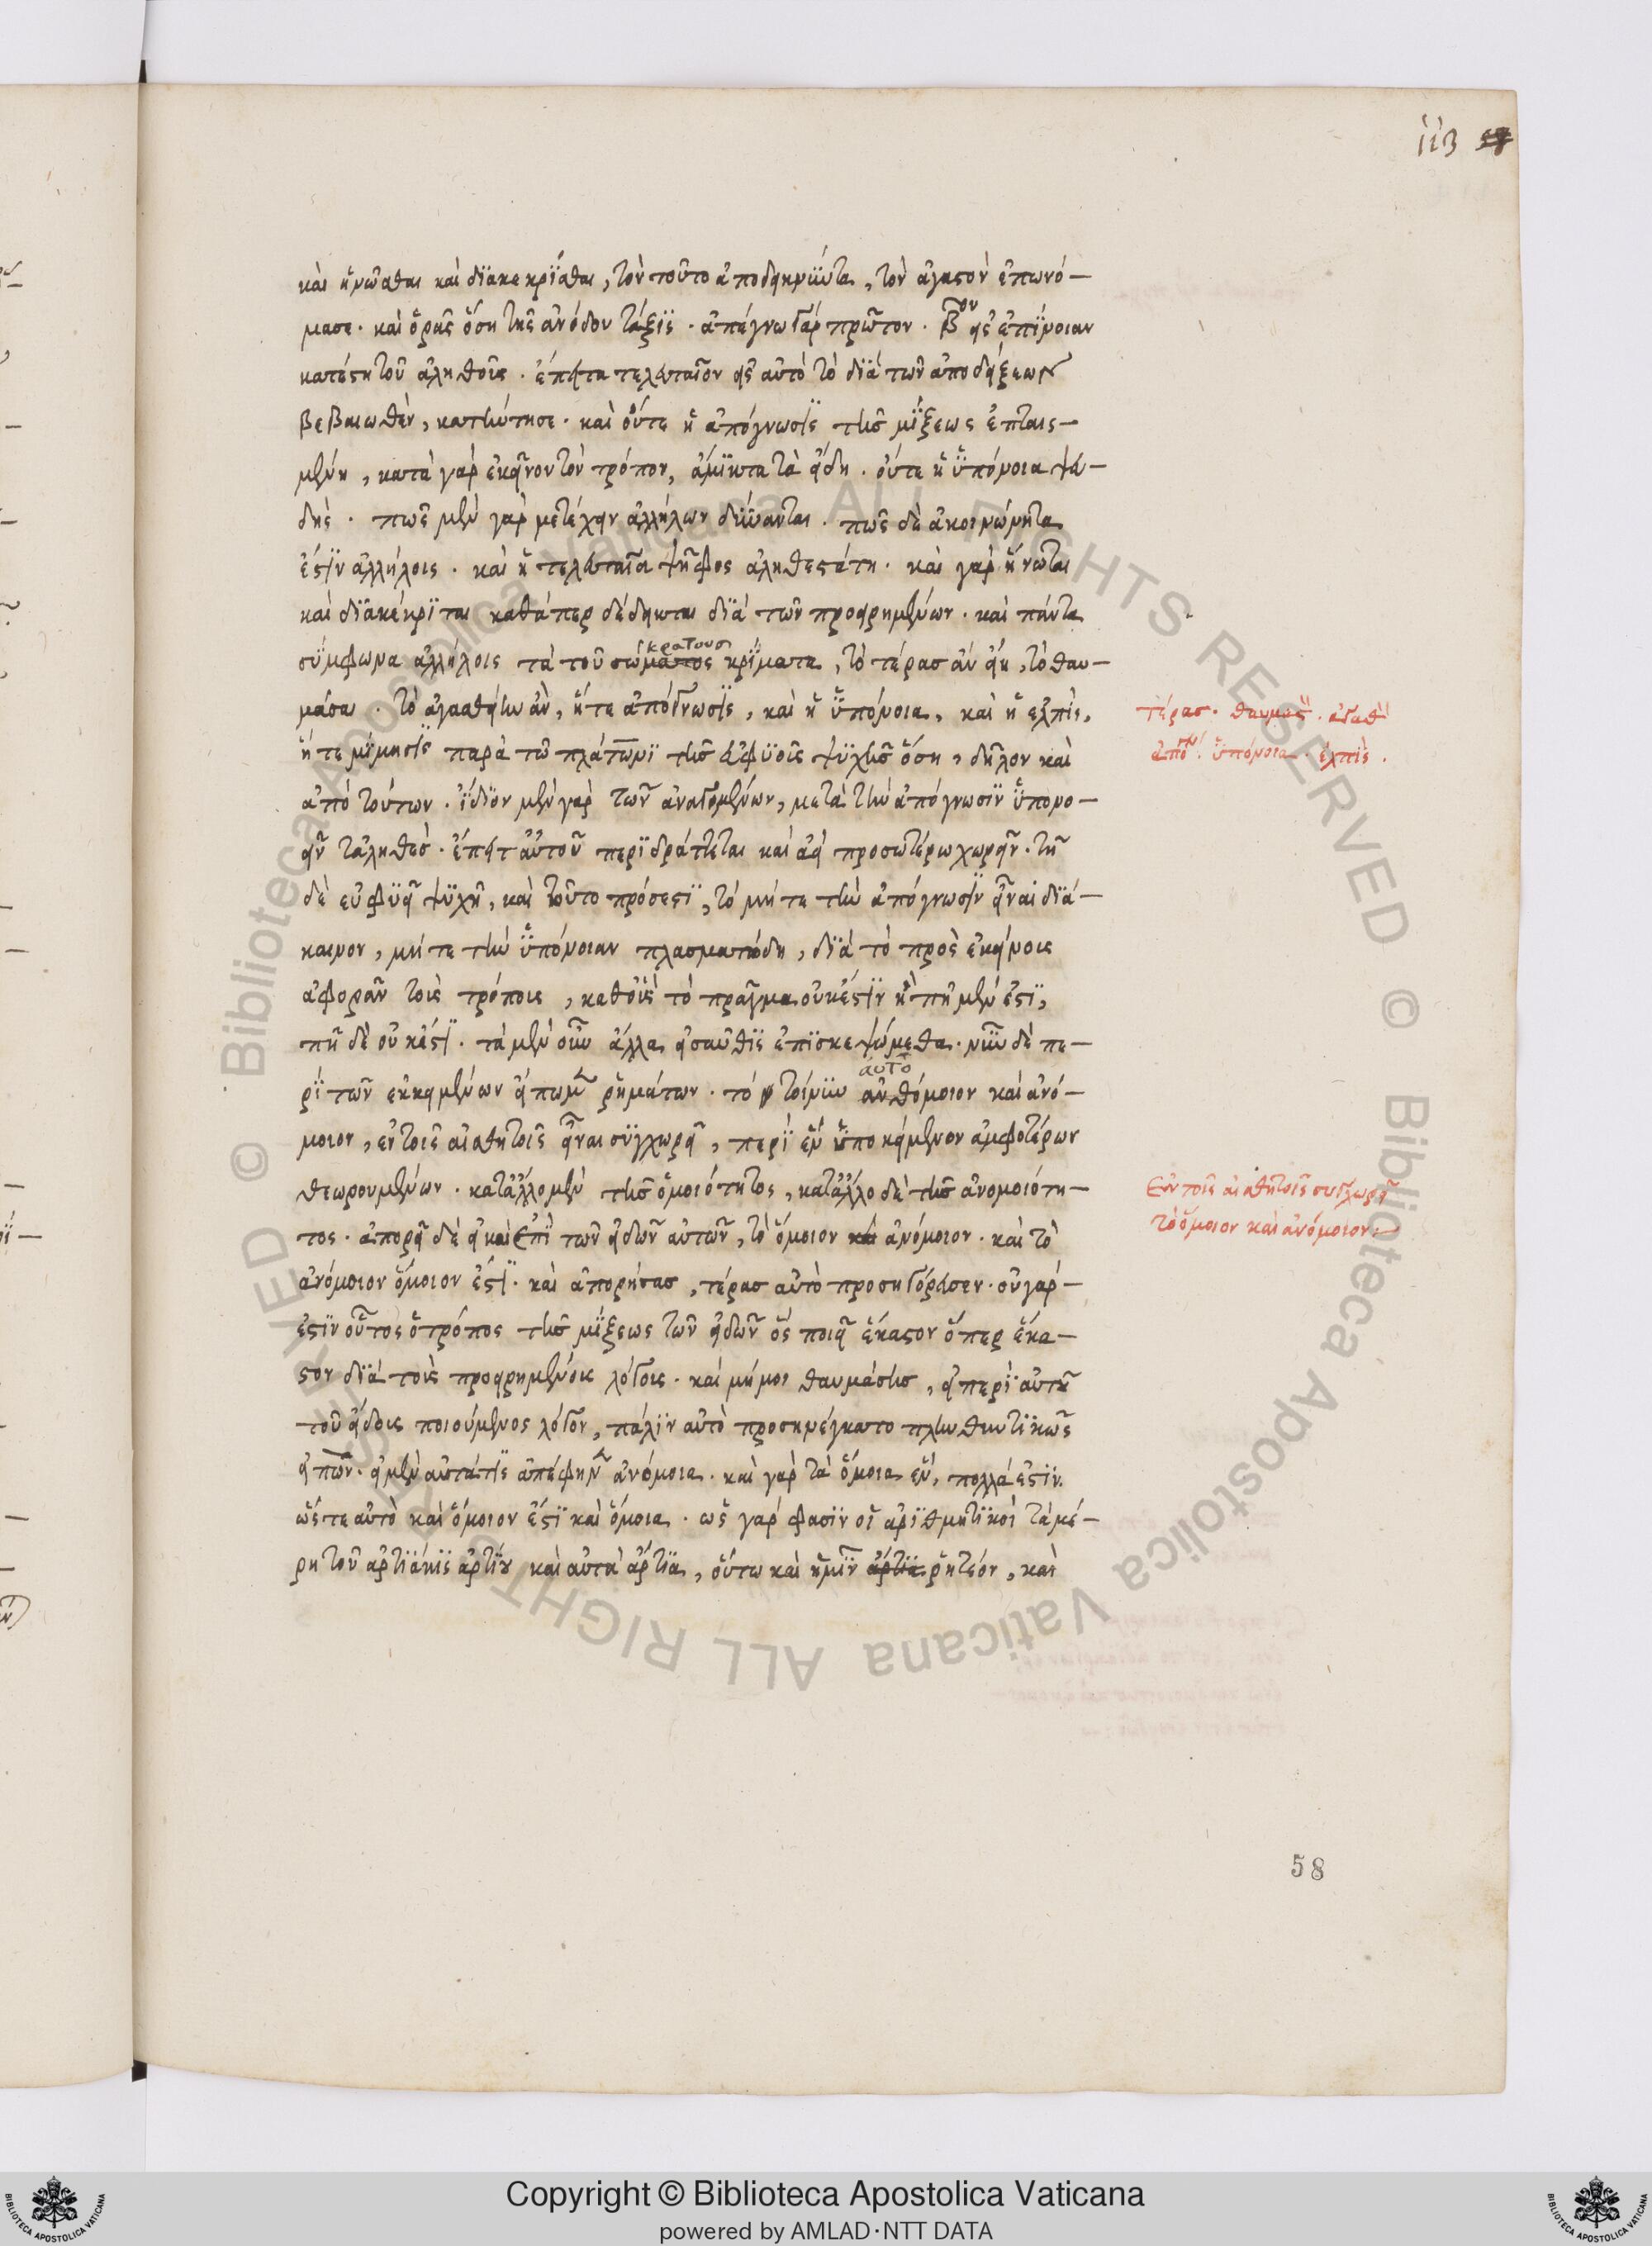 113 58
καὶ ἡνῶσθαι καὶ διακεκρίσθαι, τὸν τοῦτο ἀποδεικνύντα, τὸν ἀγαστὸν ἐπωνό-
μασε. καὶ ὁρᾷς ὅση τῆς ἀνόδου τάξις. ἀπέγνω γὰρ πρῶτον. βον εἰς ἐπίνοιαν
κατέστη τοῦ ἀληθοῦς. ἔπειτα τελευταῖον εἰς αὐτὸ τὸ διὰ τῶν ἀποδείξεων
βεβαιωθὲν, κατήντησε. καὶ οὔτε ἡ ἀπόγνωσις τῆς μίξεως ἐπταισ-
μένη, κατὰ γὰρ ἐκεῖνον τὸν τρόπον, ἄμικτα τὰ εἴδη. οὔτε ἡ ὑπόνοια ψευ-
δής. πῶς μὲν γὰρ μετέχειν ἀλλήλων δύνανται. πῶς δὲ ἀκοινώνητα
ἐστὶν ἀλλήλοις. καὶ ἡ τελευταῖα ψῆφος ἀληθεστάτη. καὶ γὰρ ἥνωται
καὶ διακέκριται καθάπερ δέδεικται διὰ τῶν προειρημένων. καὶ πάντα
σύμφωνα ἀλλήλοις τὰ τοῦ σώματος κρίματα, τὸ τέρας ἂν εἴη, τὸ θαυ-
κρατους
μάσαι. τὸ ἀγασθείην ἂν, ἥτε ἀπόγνωσις, καὶ ἡ ὑπόνοια, καὶ ἡ ἐλπὶς,
ἥ τε μίμησις παρὰ τῷ πλάτωνι τῆς εὐφυοῦς ψυχῆς ὅση, δῆλον καὶ
ἀπὸ τούτων. ἴδιον μὲν γὰρ τῶν ἀναγομένων, μετὰ τὴν ἀπόγνωσιν ὑπονο-
εῖν τἀληθές. ἔπειτ' αὐτοῦ περιδράττεται καὶ ἀεὶ προσωτέρω χωρεῖν. τῇ
δὲ εὐφυεῖ ψυχῇ, καὶ τοῦτο πρόσεστι, τὸ μήτε τὴν ἀπόγνωσιν εἶναι διά-
καινον, μήτε τὴν ὑπόνοιαν πλασματώδη, διὰ τὸ πρὸς ἐκείνους
ἀφορᾶν τοὺς τρόπους, καθ' οὓς τὸ πρᾶγμα οὐκ ἔστιν ἢ πῆ μὲν ἐστί,
πῆ δὲ οὐκ ἐστί. τὰ μὲν οὖν ἄλλα εἰσαῦθις ἐπισκεψώμεθα. νῦν δὲ πε-
ρὶ τῶν ἐκκειμένων εἴπωμεν ῥημάτων. τό τοίνυν αὖθόμοιον καὶ ἀνό-
αὐτὸ
μοιον, ἐν τοῖς αἰσθητοῖς εἶναι συγχωρεῖ, περὶ ἓν ὑποκείμενον ἀμφοτέρων
θεωρουμένων. κατ' ἄλλο μὲν τῆς ὁμοιότητος, κατ' ἄλλο δὲ τῆς ἀνομοιότη-
τος. ἀπορεῖ δὲ εἰ καὶ ἐπὶ τῶν εἰδῶν αὐτῶν, τὸ ὅμοιον καὶ ἀνόμοιον. καὶ τὸ
ἀνόμοιον ὅμοιον ἐστί. καὶ ἀπορήσας, τέρας αὐτὸ προσηγόρευσεν. οὐ γάρ-
ἐστιν οὗτος ὁ τρόπος τῆς μίξεως τῶν εἰδῶν ὃς ποιεῖ ἕκαστον ὅπερ ἕκα-
στον διὰ τοὺς προειρημένους λόγους. καὶ μή μοι θαυμάσῃς, εἰ περὶ αὐτοῦ
τοῦ εἴδους ποιούμενος λόγον, πάλιν αὐτὸ προσηνέγκατο πληθυντικῶς
εἰπὼν. εἰ μὲν αὐτά τις ἀπέφηνεν ἀνόμοια. καὶ γὰρ τὰ ὅμοια ἓν, πολλά ἐστιν.
ὥστε αὐτὸ καὶ ὅμοιον ἐστὶ καὶ ὅμοια. ὡς γάρ φασιν οἱ ἀριθμητικοὶ τὰ μέ-
ρη τοῦ ἀρτιάκις ἀρτίου καὶ αὐτὰ ἄρτια, οὕτω καὶ ἡμῖν ἄρτια ῥητέον, καὶ
τέρας. θαυμας. ἀγαθ
ἀπό. ὑπόνοια. ἐλπὶς.
Ἐν τοῖς αἰσθητοῖς συγχωρεῖ
τὸ ὅμοιον καὶ ἀνόμοιον:-
58
© Biblioteca Apostolica Vaticana ALL RIGHTS RESERVED © Biblioteca Apostolica Vaticana ALL RIGHTS RESERVED
Copyright © Biblioteca Apostolica Vaticana
powered by AMLAD·NTT DATA